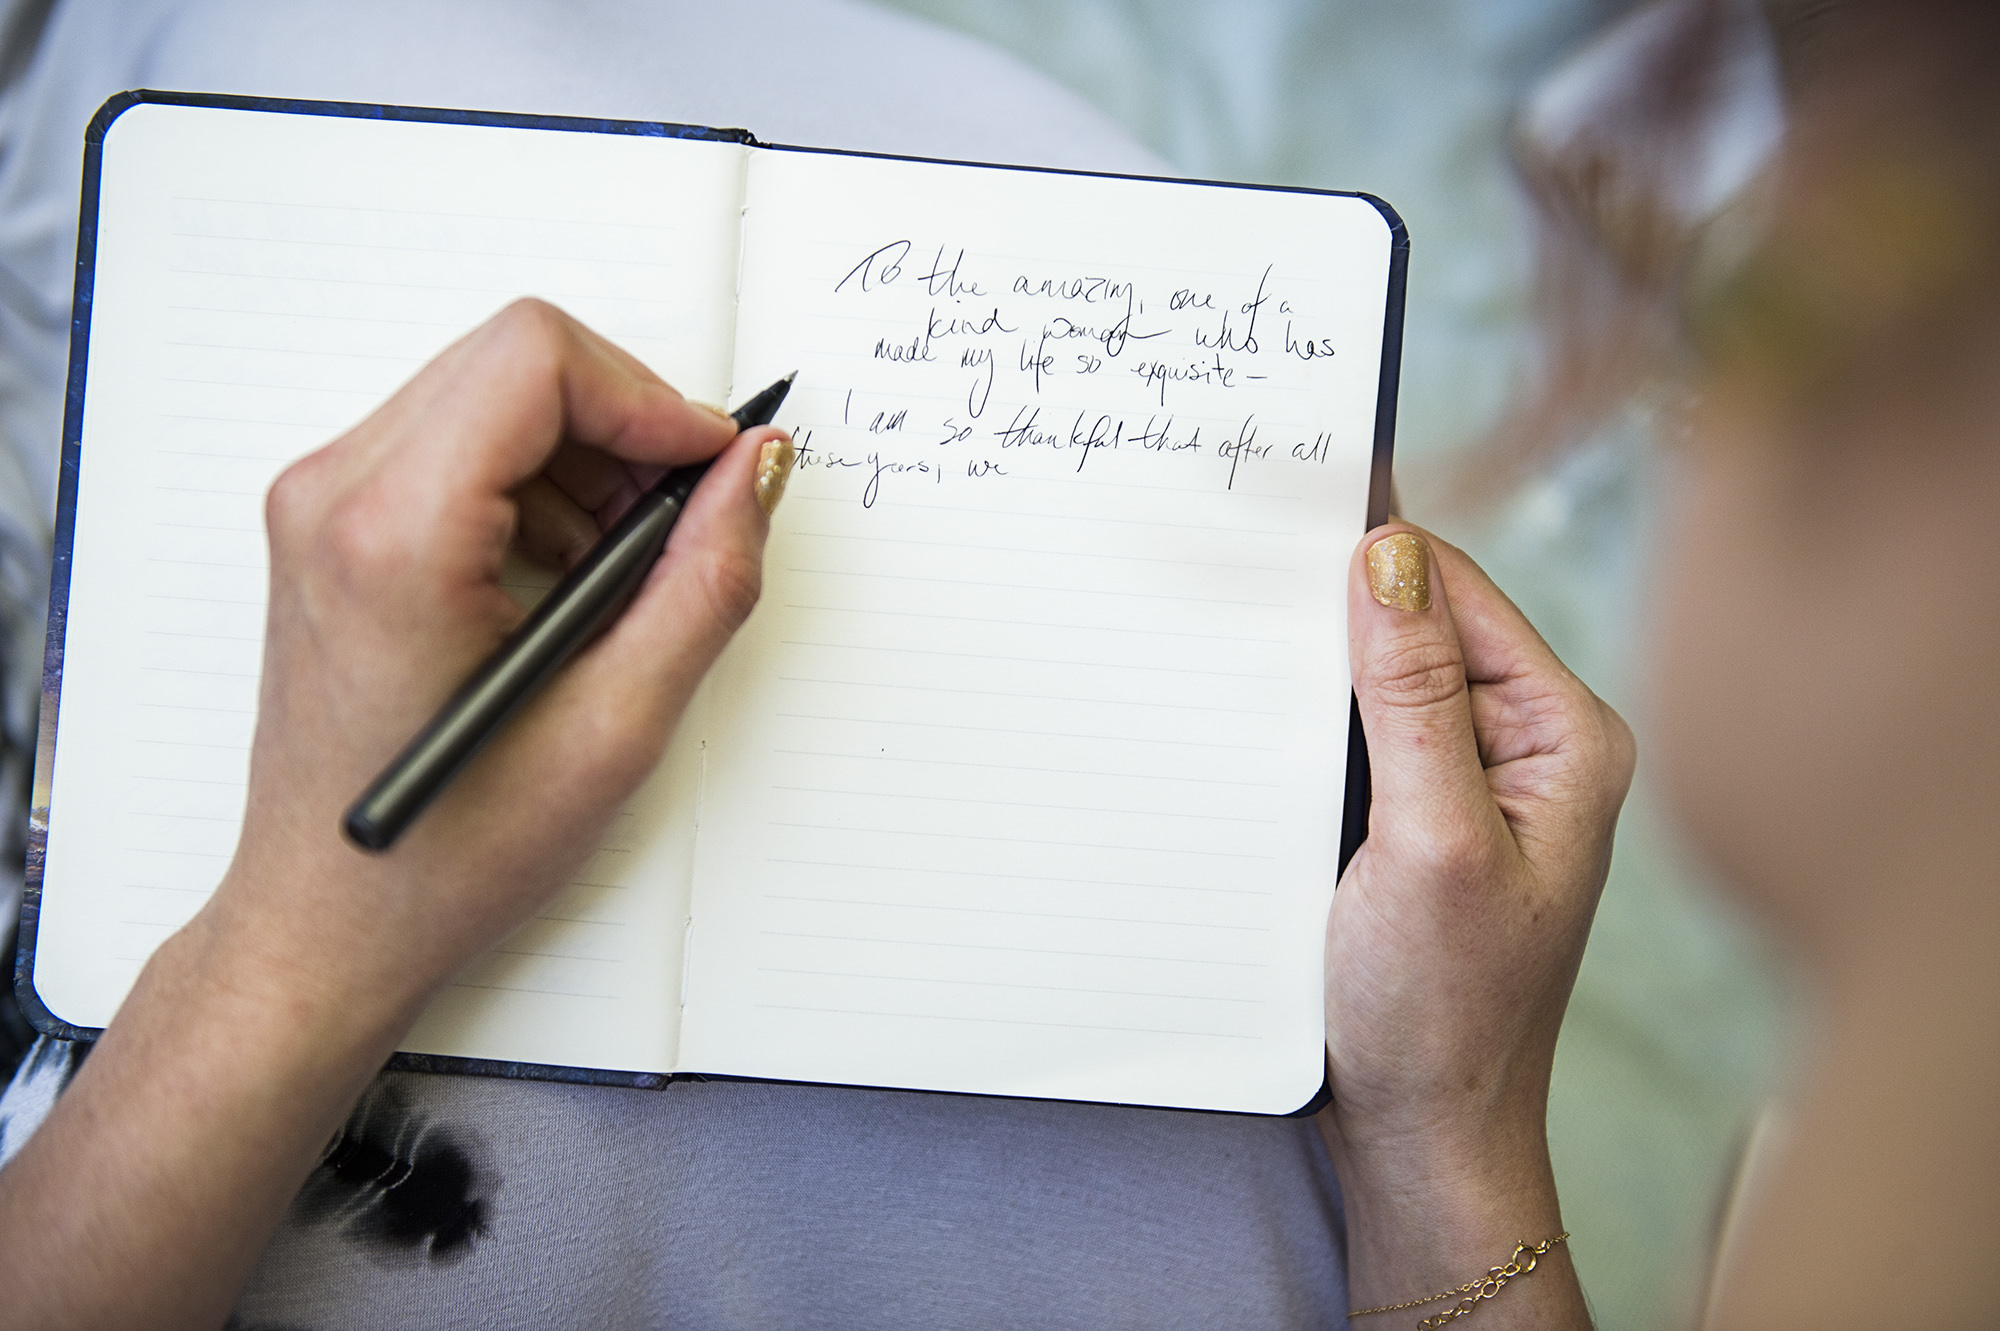 To the amazing, one of a
kind woman who has
made my life so exquisite -
I am so thankful that after all
these years, we